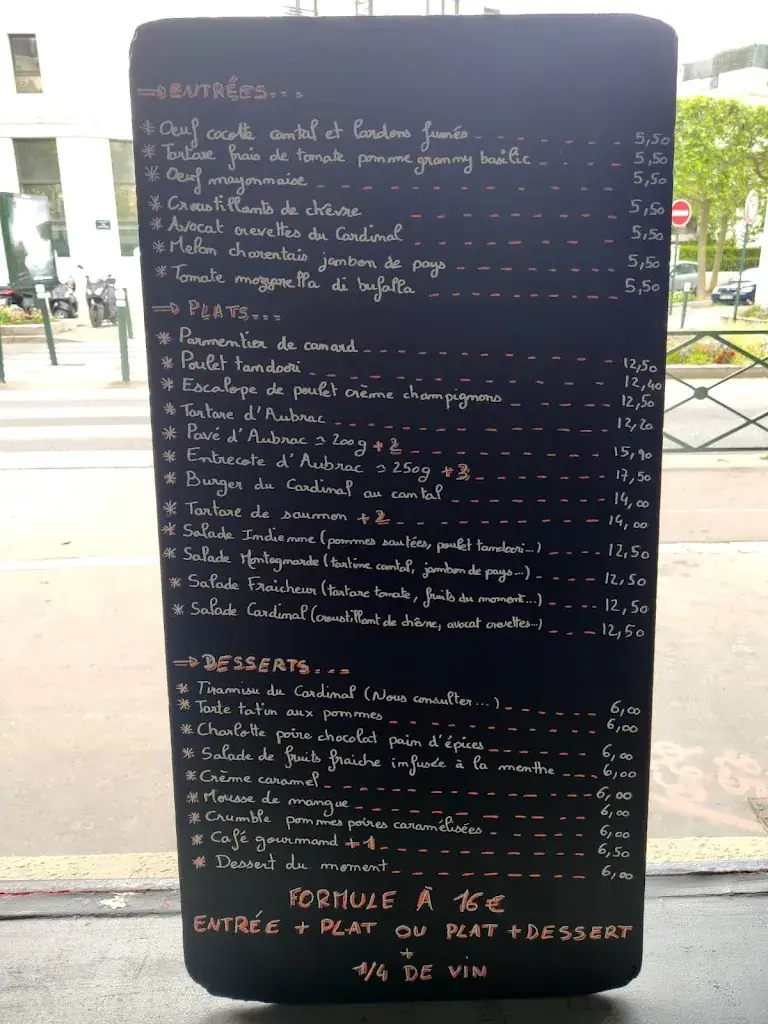 => ENTRÉES...
* Oeuf cocotte cantal et lardons fumés 5,50
* Tartare frais de tomate pomme granny basilic 5,50
* Oeuf mayonnaise 5,50
* Croustillants de chèvre 5,50
* Avocat crevettes du Cardinal 5,50
* Melon charentais jambon de pays 5,50
* Tomate mozzarella di bufalla 5,50
=> PLATS...
* Parmentier de canard 12,50
* Poulet tandoori 12,40
* Escalope de poulet crème champignons 12,50
* Tartare d'Aubrac 12,20
* Pavé d'Aubrac ≃ 200g +2 15,90
* Entrecote d'Aubrac ≃ 250g +3 17,50
* Burger du Cardinal au cantal 14,00
* Tartare de saumon +2 14,00
* Salade Indienne (pommes sautées, poulet tandoori...) 12,50
* Salade Montagnarde (tartine cantal, jambon de pays...) 12,50
* Salade Fraicheur (tartare tomate, fruits du moment...) 12,50
* Salade Cardinal (croustillant de chèvre, avocat crevettes...) 12,50
=> DESSERTS...
* Tiramisu du Cardinal (Nous consulter...) 6,00
* Tarte tatin aux pommes 6,00
* Charlotte poire chocolat pain d'épices 6,00
* Salade de fruits fraiche infusée à la menthe 6,00
* Crème caramel 6,00
* Mousse de mangue 6,00
* Crumble pommes poires caramélisées 6,00
* Café gourmand +1 6,50
* Dessert du moment 6,00
FORMULE À 16€
ENTRÉE + PLAT OU PLAT + DESSERT
+
1/4 DE VIN